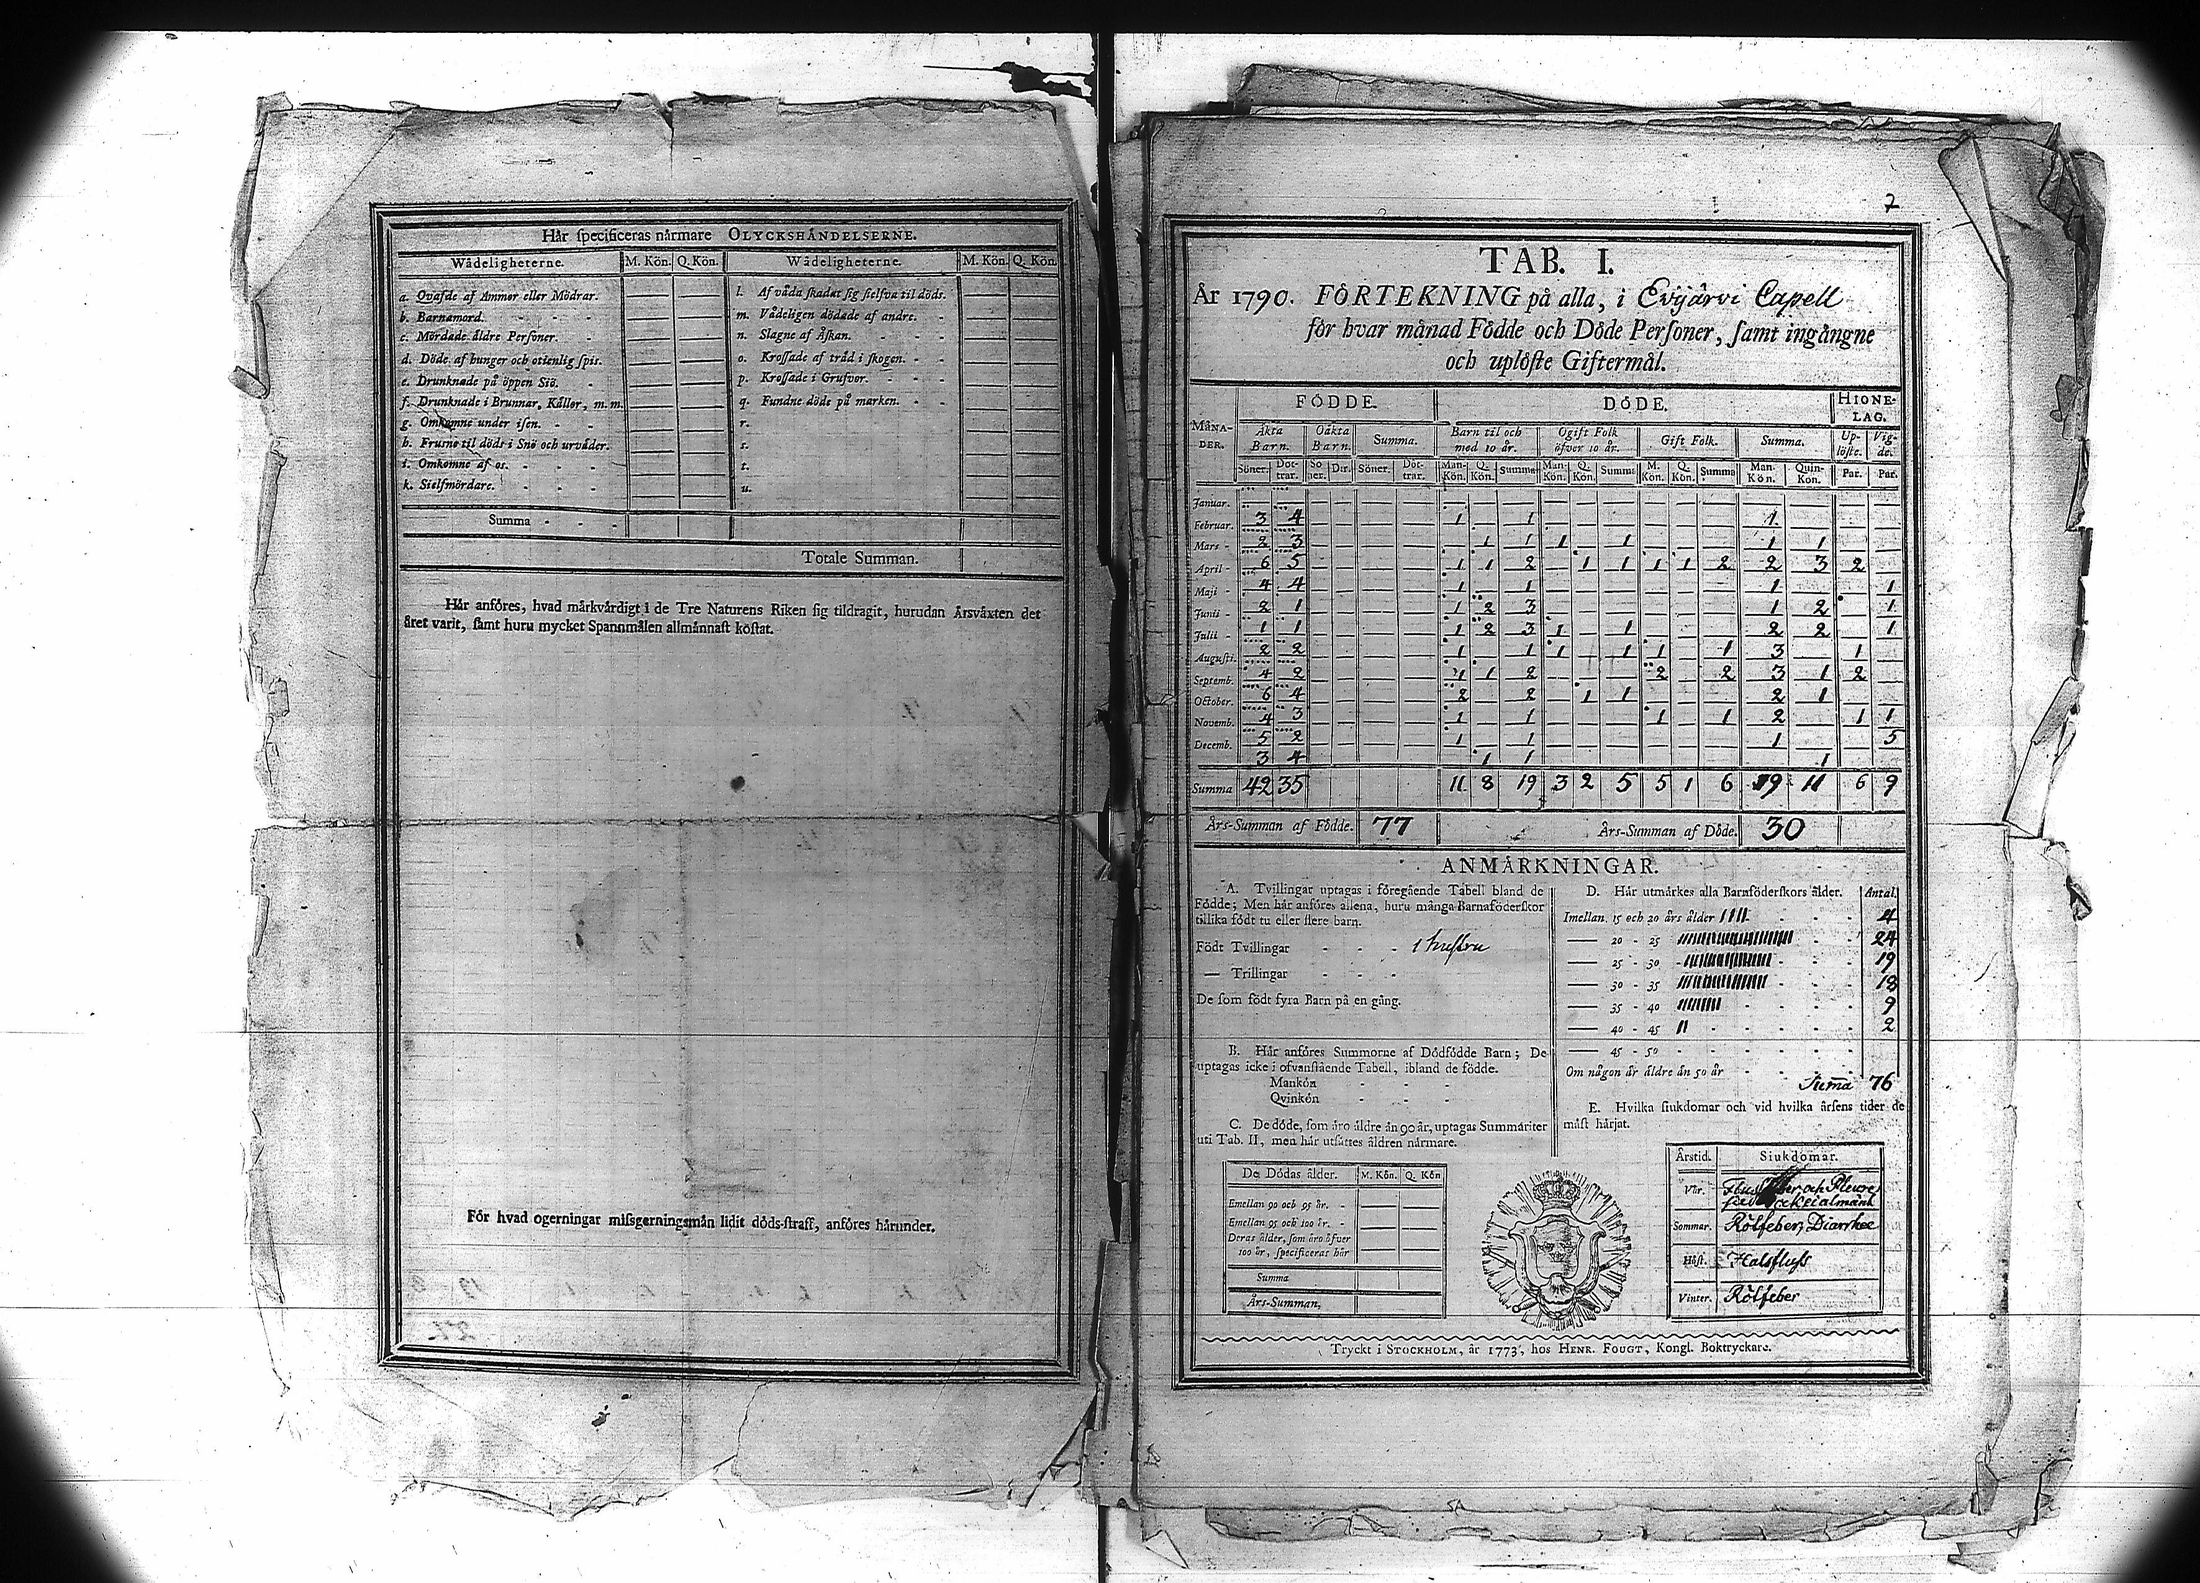 Här specificeras närmare OLYCKSHÄNDELSERNE.
Wådeligheterne. M. Kön. Q. Kön. Wådeligheterne. M. Kön. Q. Kön.
a. Qvafde af Ammor eller Mödrar. — — l. Af våda skadat sig sielfva til döds. — —
b. Barnamord. — — m. Vådeligen dödade af andre. — —
c. Mördade äldre Personer. — — n. Slagne af Åskan. — —
d. Döde af hunger och otienlig spis. — — o. Krossade af träd i skogen. — —
e. Drunknade på öppen Siö. — — p. Krossade i Grufvor. — —
f. Drunknade i Brunnar, Källor, m. m. — — q. Fundne döde på marken. — —
g. Omkomne under isen. — — r. — —
h. Frusne til döds i Snö och urväder. — — s. — —
i. Omkomne af os. — — t. — —
k. Sielfmördare. — — u. — —
Summa
Totale Summan.
Här anföres, hvad märkvärdigt i de Tre Naturens Riken sig tildragit, hurudan Årsväxten det
året varit, samt huru mycket Spannmålen allmännast kostat.
För hvad ogerningar missgerningsmän lidit döds-straff, anföres härunder.
7
TAB. I.
År 1790. FÖRTEKNING på alla, i Evijärvi Capell
för hvar månad Födde och Döde Personer, samt ingångne
och uplöste Giftermål.
FÖDDE. DÖDE. HIONE-
LAG.
MÅNA-
DER. Äkta
Barn. Oäkta
Barn. Summa. Barn til och
med 10 år. Ogift Folk
öfver 10 år. Gift Folk. Summa. Up-
löste. Vig-
de.
Söner. Dot-
trar. So
ner. Dtr. Söner. Döt-
trar. Man-
Kön. Q.
Kön. Summa Man-
Kön. Q.
Kön. Summa M.
Kön. Q.
Kön. Summa Man.
Kön. Quin-
Kön. Par. Par.
Januar. 3 4 — — — — 1 — 1 — — — — — — 1 — — —
Februar. 2 3 — — — — — 1 1 1 — 1 — — — 1 1 — —
Mars 6 5 — — — — 1 1 2 — 1 1 1 1 2 2 3 2 —
April 4 4 — — — — 1 — 1 — — — — — — 1 — — 1
Maji 2 1 — — — — 1 2 3 — — — — — — 1 2 — 1
Junii 1 1 — — — — 1 2 3 1 — 1 — — — 2 2 — 1
Julii 2 2 — — — — 1 — 1 1 — 1 1 — 1 3 — 1 —
Augusti. 4 2 — — — — 1 1 2 — — — 2 — 2 3 1 2 —
Septemb. 6 4 — — — — 2 — 2 — 1 1 — — — 2 1 — —
October. 4 3 — — — — 1 — 1 — — — 1 — 1 2 — 1 1
Novemb. 5 2 — — — — 1 — 1 — — — — — — 1 — — 5
Decemb. 3 4 — — — — — 1 1 — — — — — — — 1 — —
Summa 42 35 11 8 19 3 2 5 5 1 6 19 11 6 9
Års-Summan af Födde. 77 Års-Summan af Döde. 30
ANMÄRKNINGAR.
A. Tvillingar uptagas i föregående Tabell bland de
Födde; Men här anföres allena, huru många Barnaföderskor
tillika födt tu eller flere barn.
Födt Tvillingar - - - 1 hustru
— Trillingar - - -
De som födt fyra Barn på en gång.
B. Här anföres Summorne af Dödfödde Barn; De
uptagas icke i ofvanstående Tabell, ibland de födde.
Mankön - - -
Qvinkön - - -
C. De döde, som äro äldre än 90 år, uptagas Summariter
uti Tab. II, men här utsättes åldren närmare.
De Dödas ålder. M. Kön. Q. Kön
Emellan 90 och 95 år. — —
Emellan 95 och 100 år. — —
Deras ålder, som äro öfver
100 år, specificeras här — —
Summa
Års-Summan.
D. Här utmärkes alla Barnföderskors ålder. Antal.
Imellan 15 och 20 års ålder 4
— 20 - 25 24
— 25 - 30 19
— 30 - 35 18
— 35 - 40 9
— 40 - 45 2
— 45 - 50
Om någon är äldre än 50 år
Suma 76
E. Hvilka siukdomar och vid hvilka årsens tider de
mäst härjat.
Årstid. Siukdomar.
Vår.
Sommar. Rötfeber, Diarrhee
Höst. Halsfluss
Vinter. Rötfeber
Tryckt i STOCKHOLM, år 1773, hos HENR. FOUGT, Kongl. Boktryckare.